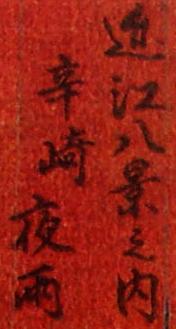 近江八景之内
辛崎
夜雨